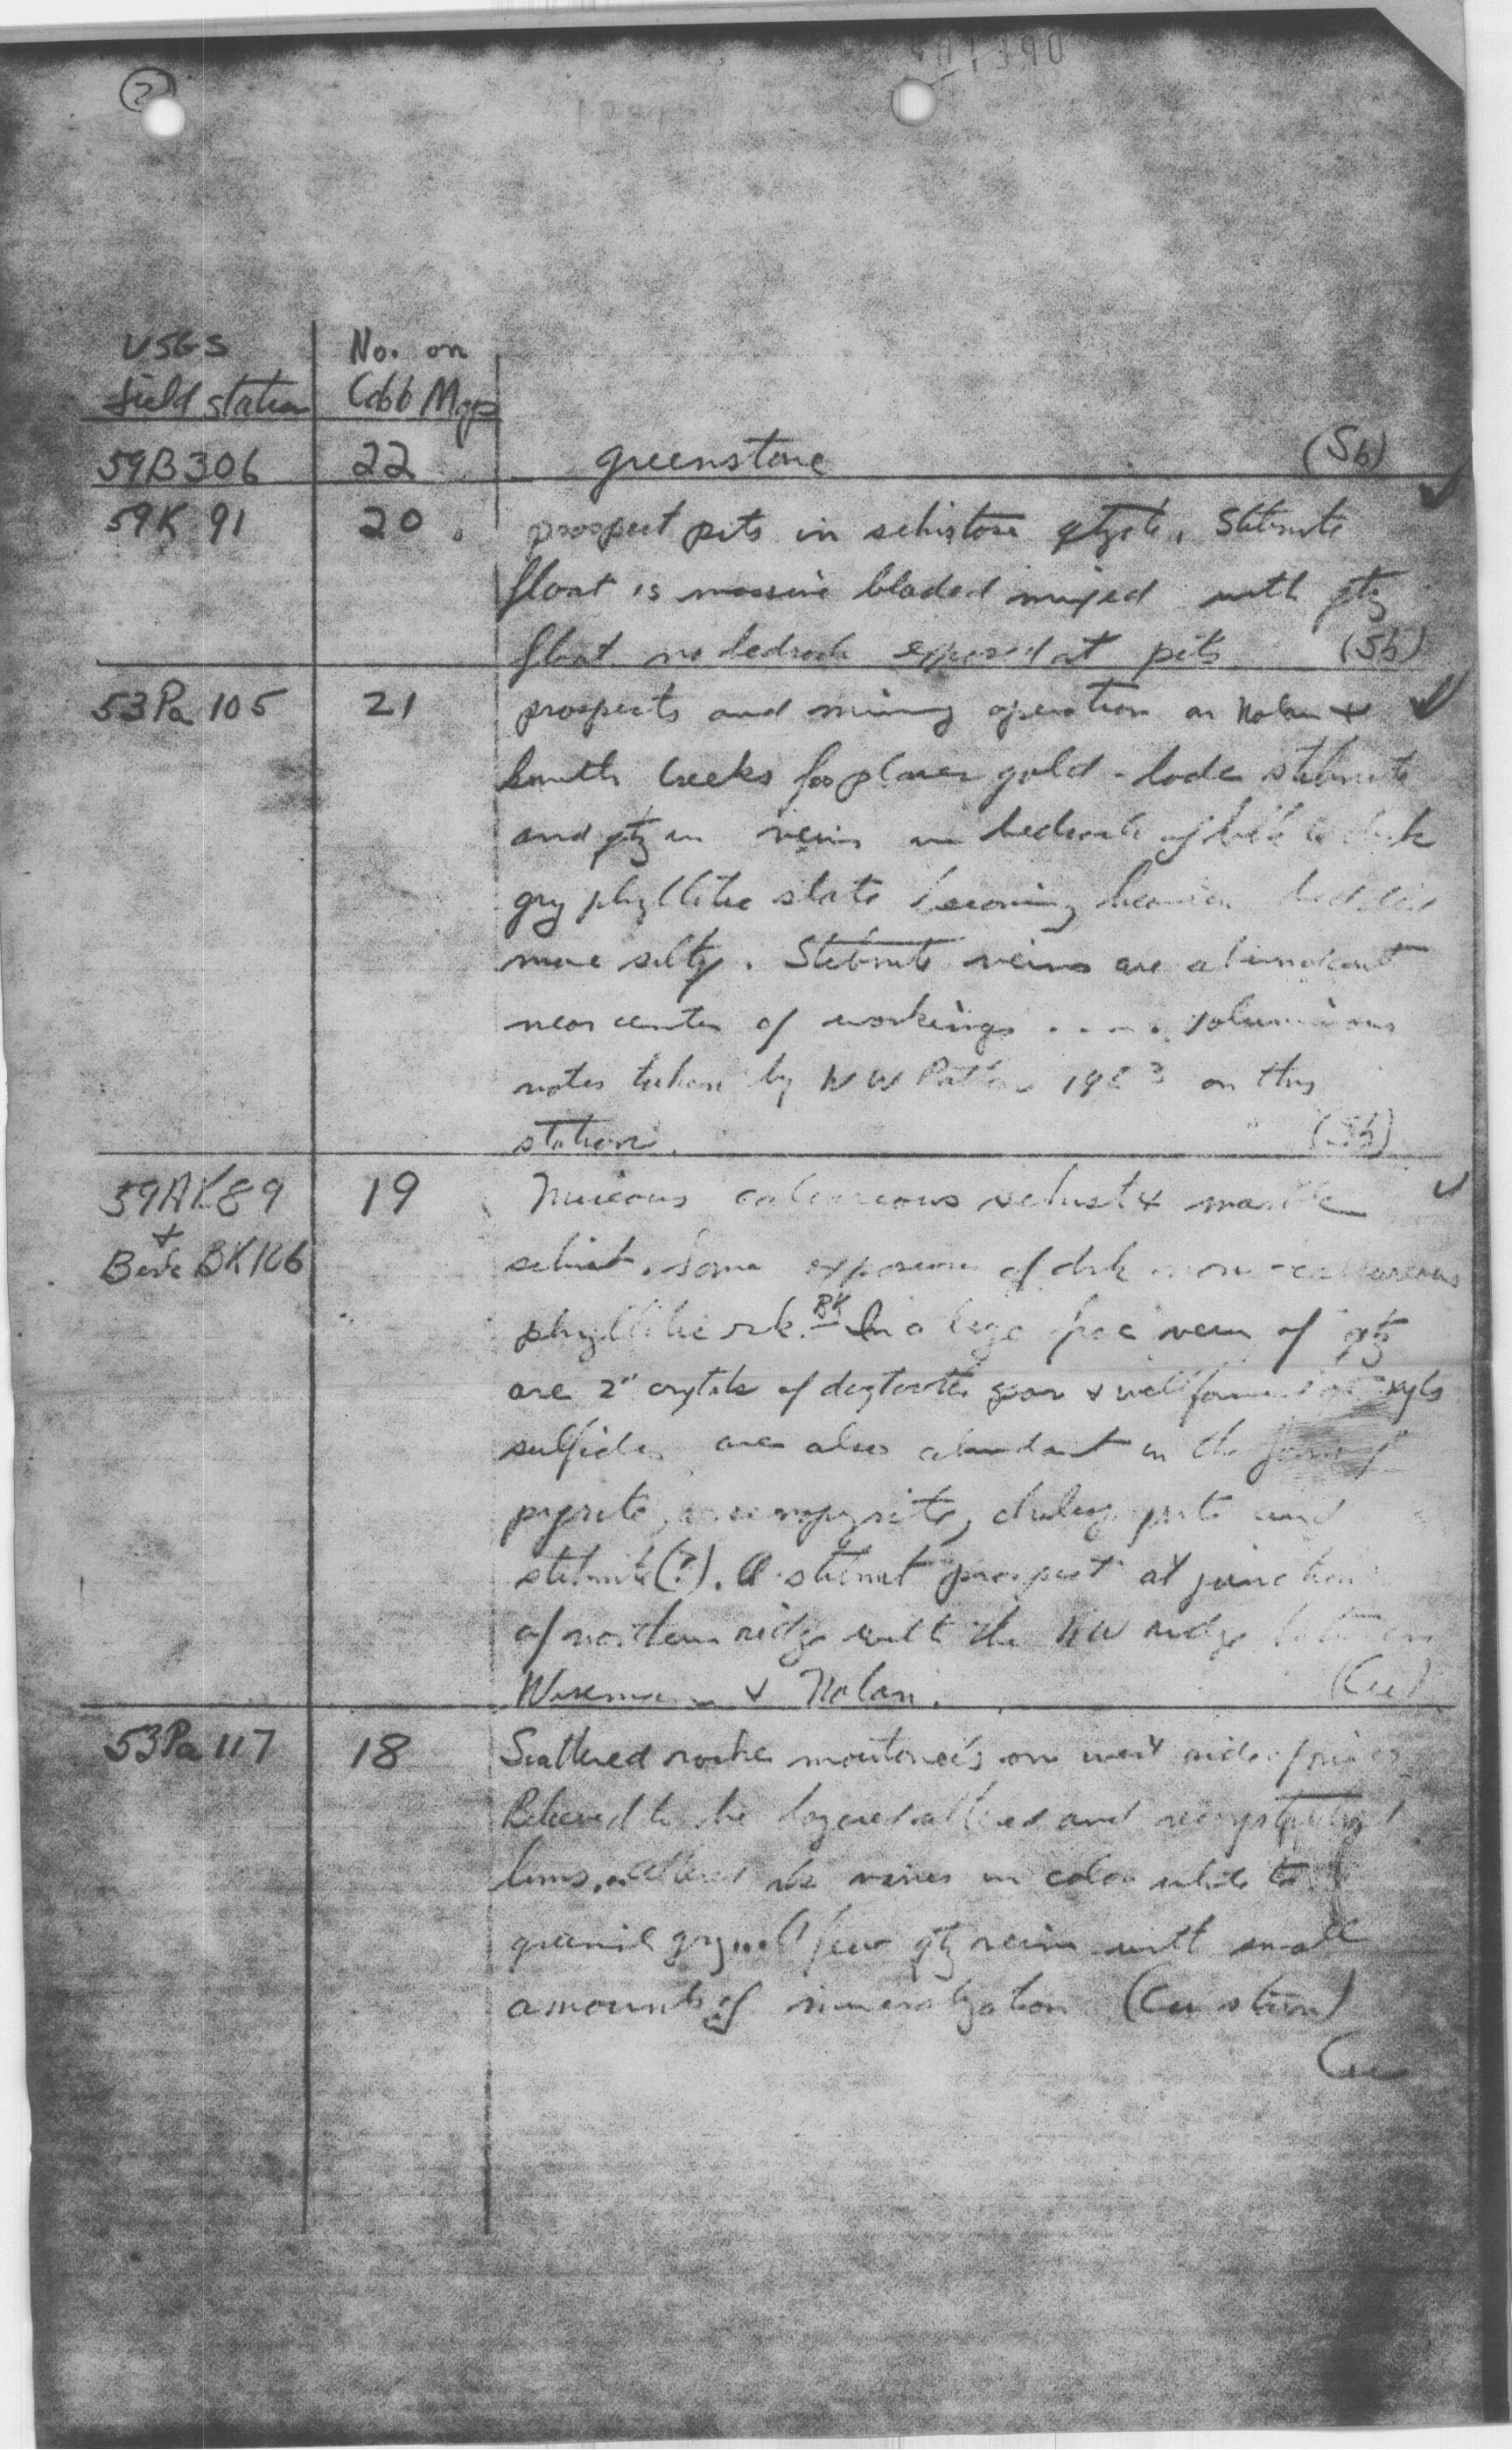 2
USGS No. on
field station Cobb Map
59B306 22 greenstone (Sb)
59K 91 20 prospect pits in schistose qtzite. Stibnite
float is massive bladed mixed with qtz
float no bedrock exposed at pits (Sb)
53Pa 105 21 prospects and mining operation on Nolan +
Smith Creeks for placer gold - lode stibnite
and qtz in veins in bedrock of
gry phyllitic slate becoming
more silty. Stibnite veins are abundant
near center of workings .... voluminous
notes taken by WW Patton on this
station. (Sb)
59AK89 19 Micaous calcareous schist + marble
+ schist. Some exposure of drk calcareous
BK106 phyllitic rk. BK In a large vein of qtz
are 2" crytals of dogtooth spar + well formed xyls
sulfides are also abundant in the form of
pyrite, arsenopyrite, chalcopyrite and
stibnite(?). A stibnit prospect at junction
of northern ridge with the NW ridge between
Wiseman + Nolan. (Cu)
53Pa 117 18 Scattered roche moutoneé's on west side of river
Believed to be layered altered and recrystallized
lms. altered rks varies in color white to
greenish gry few qtz veins with small
amounts of mineralization (Cu stain)
Cu